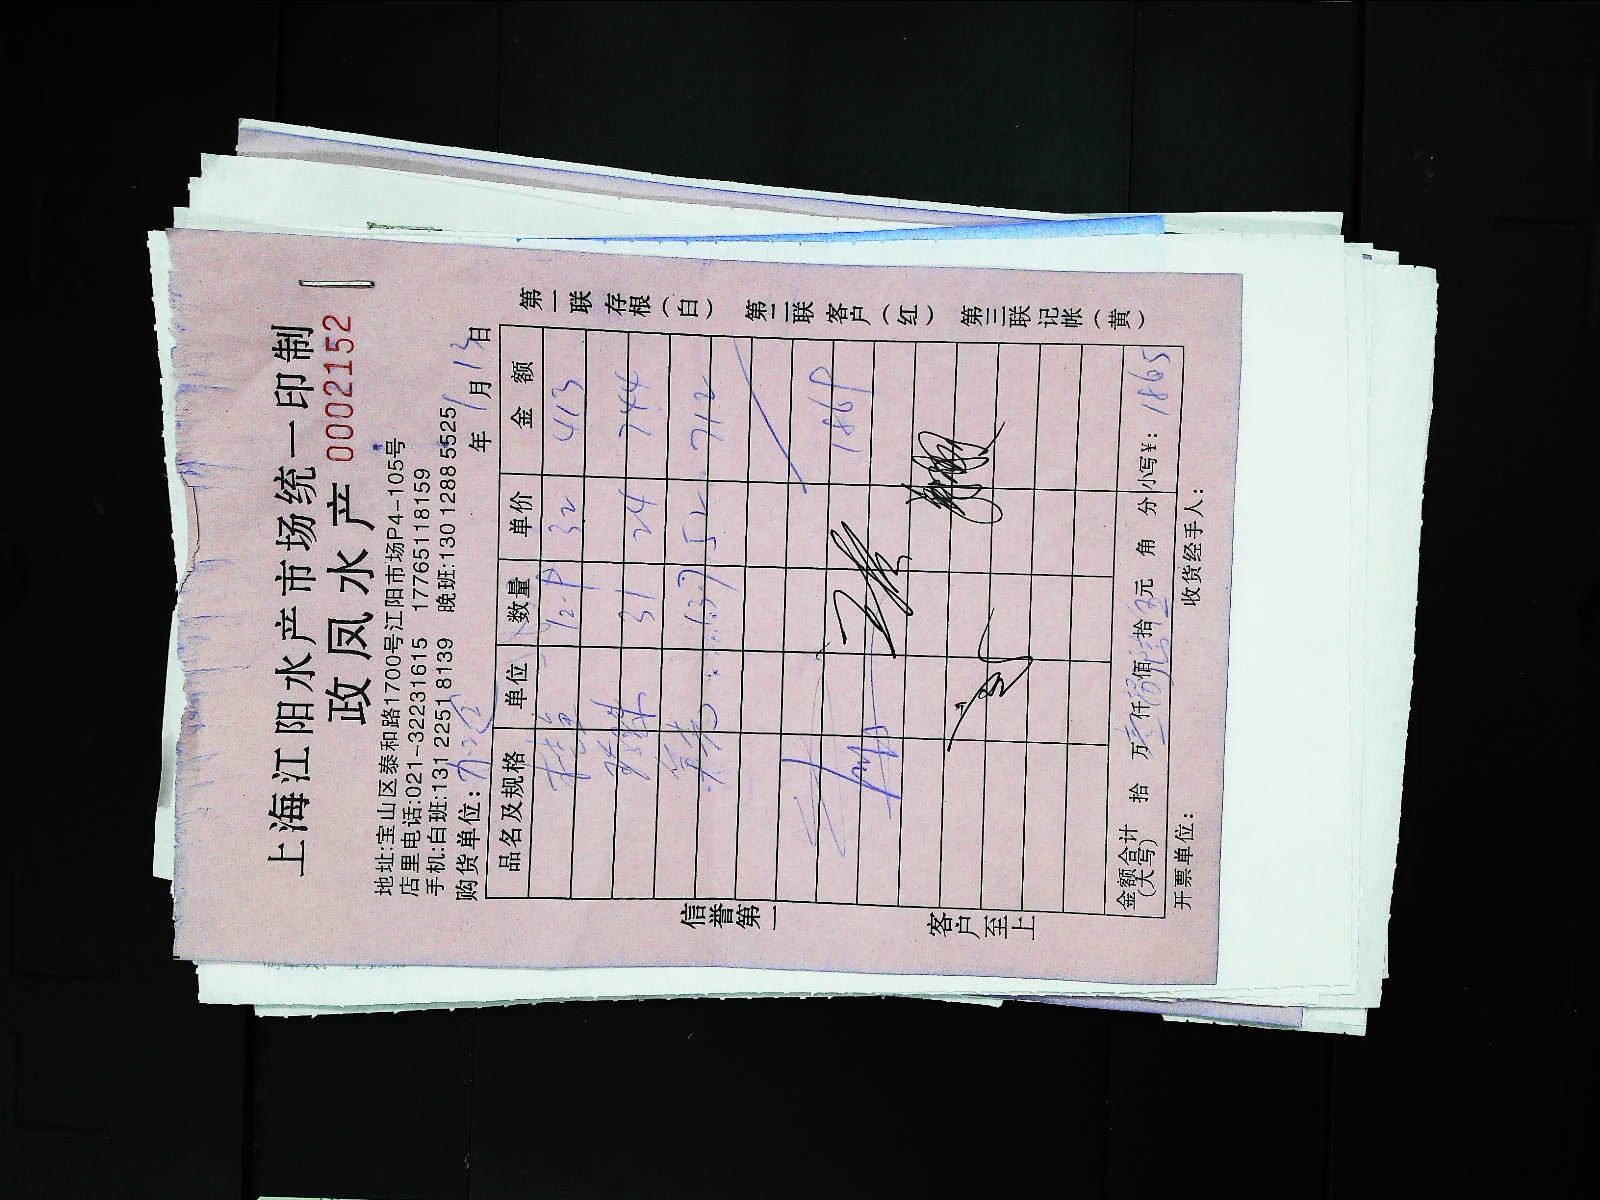 上海江阳水产市场统一印制
政凤水产 0002152
地址:宝山区泰和路1700号江阳市场P4-105号
店里电话:021-32231615 17765118159
手机:白班:131 2251 8139 晚班:130 1288 5525
购货单位: 年 9月13日
品名及规格 单位 数量 单价 金额
桂鱼 12.9 32 413
31 24 744
13.7 52 712
1869
金额合计(大写) 拾 万 仟 佰 拾 元 角 分 小写¥: 1865
开票单位: 收货经手人:
信誉第一 客户至上
第一联存根(白) 第二联客户(红) 第三联记帐(黄)